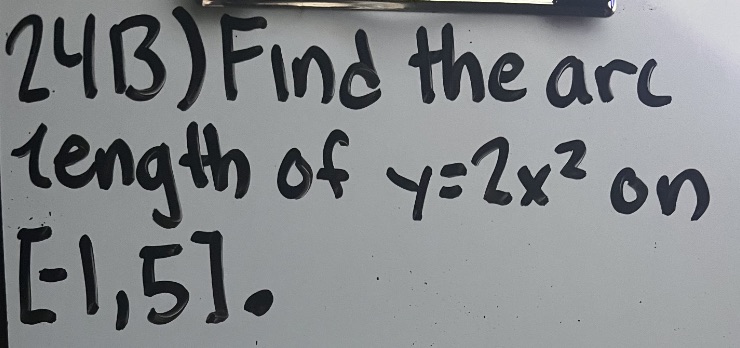 24B) Find the arc
length of y=2x²on
[-1,5].